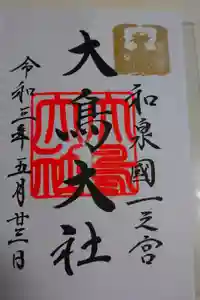 和泉國一之宮
大鳥大社
令和三年五月廿三日